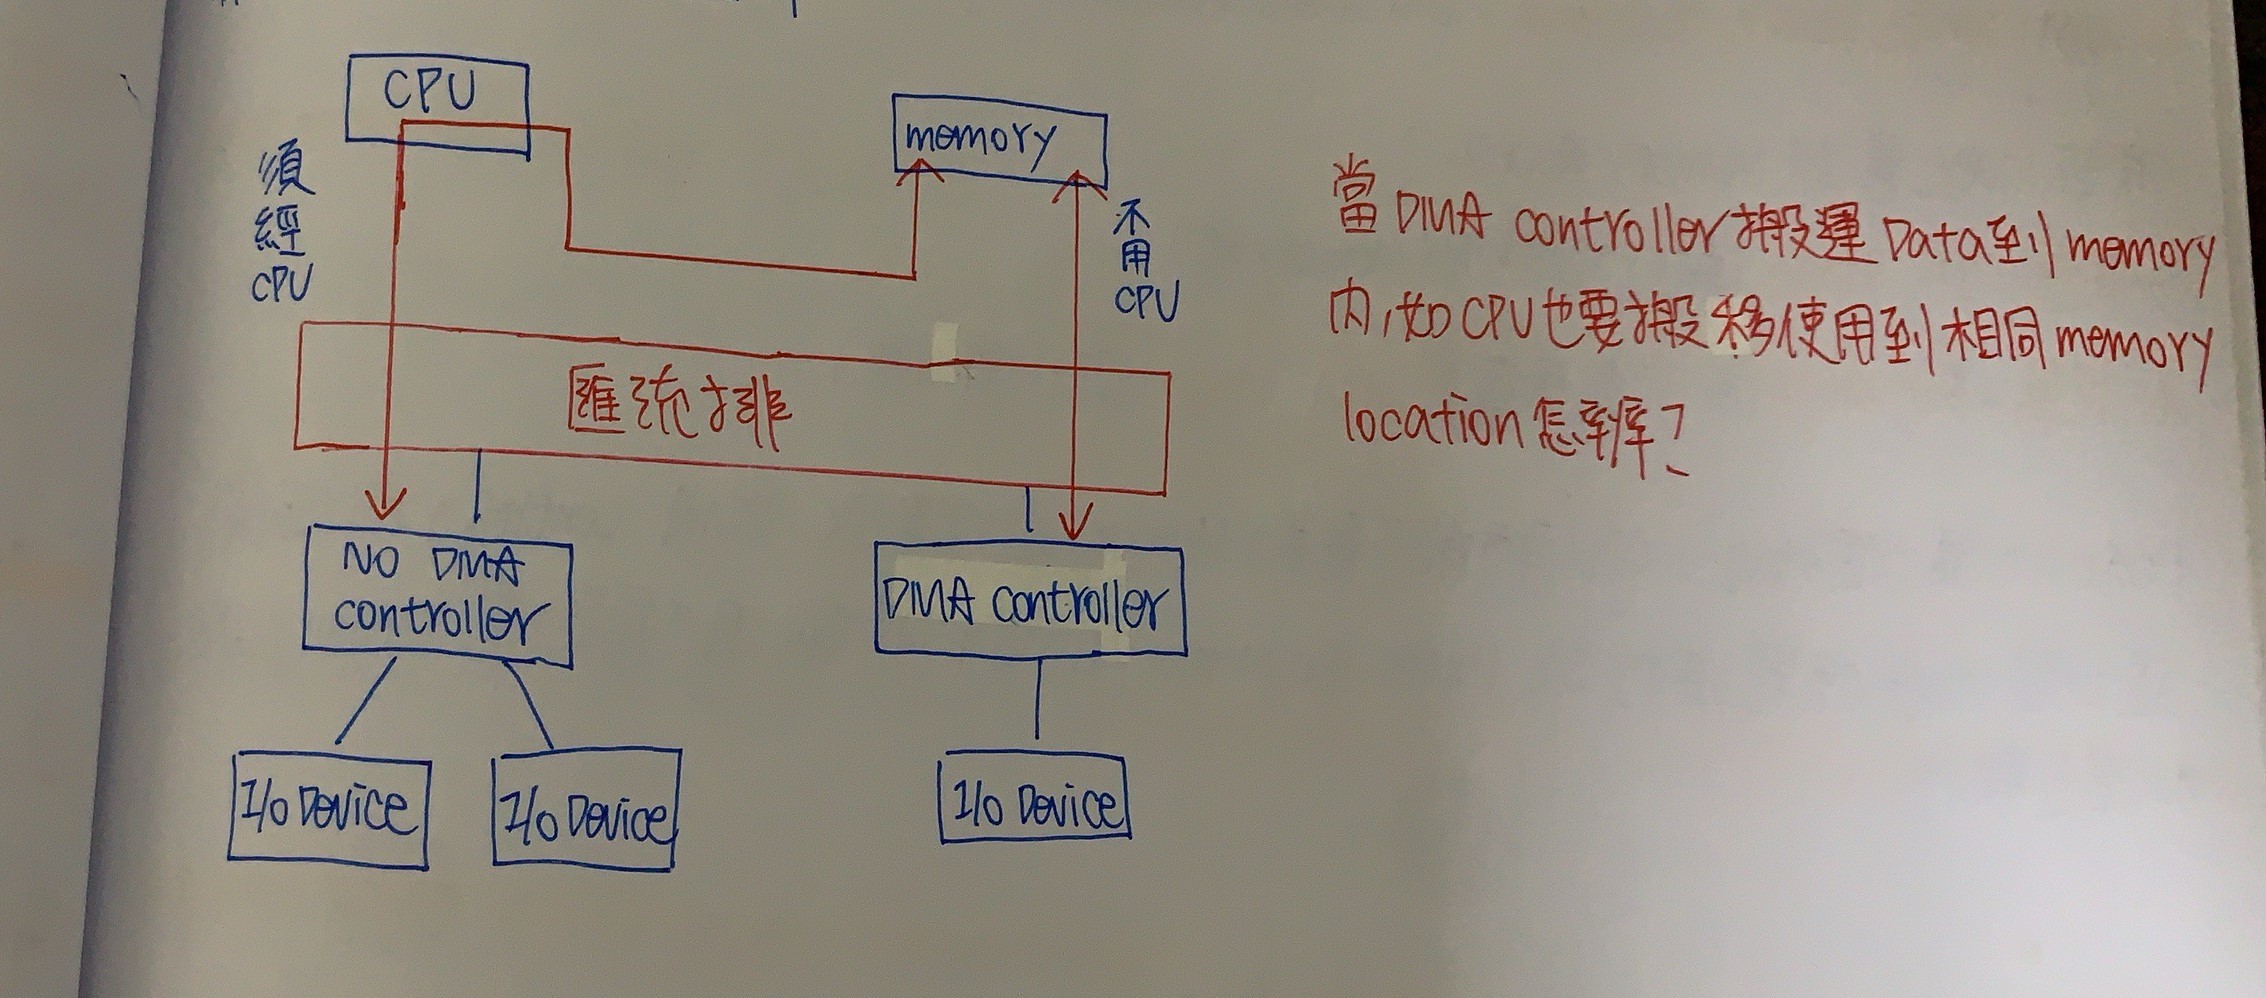 CPU
memory
須
經
CPU
不
用
CPU
匯流排
NO DMA
controller
DMA controller
I/O Device
I/O Device
I/O Device
當DMA controller搬運Data至到memory
內,如CPU也要搬移使用到相同memory
location怎辦?